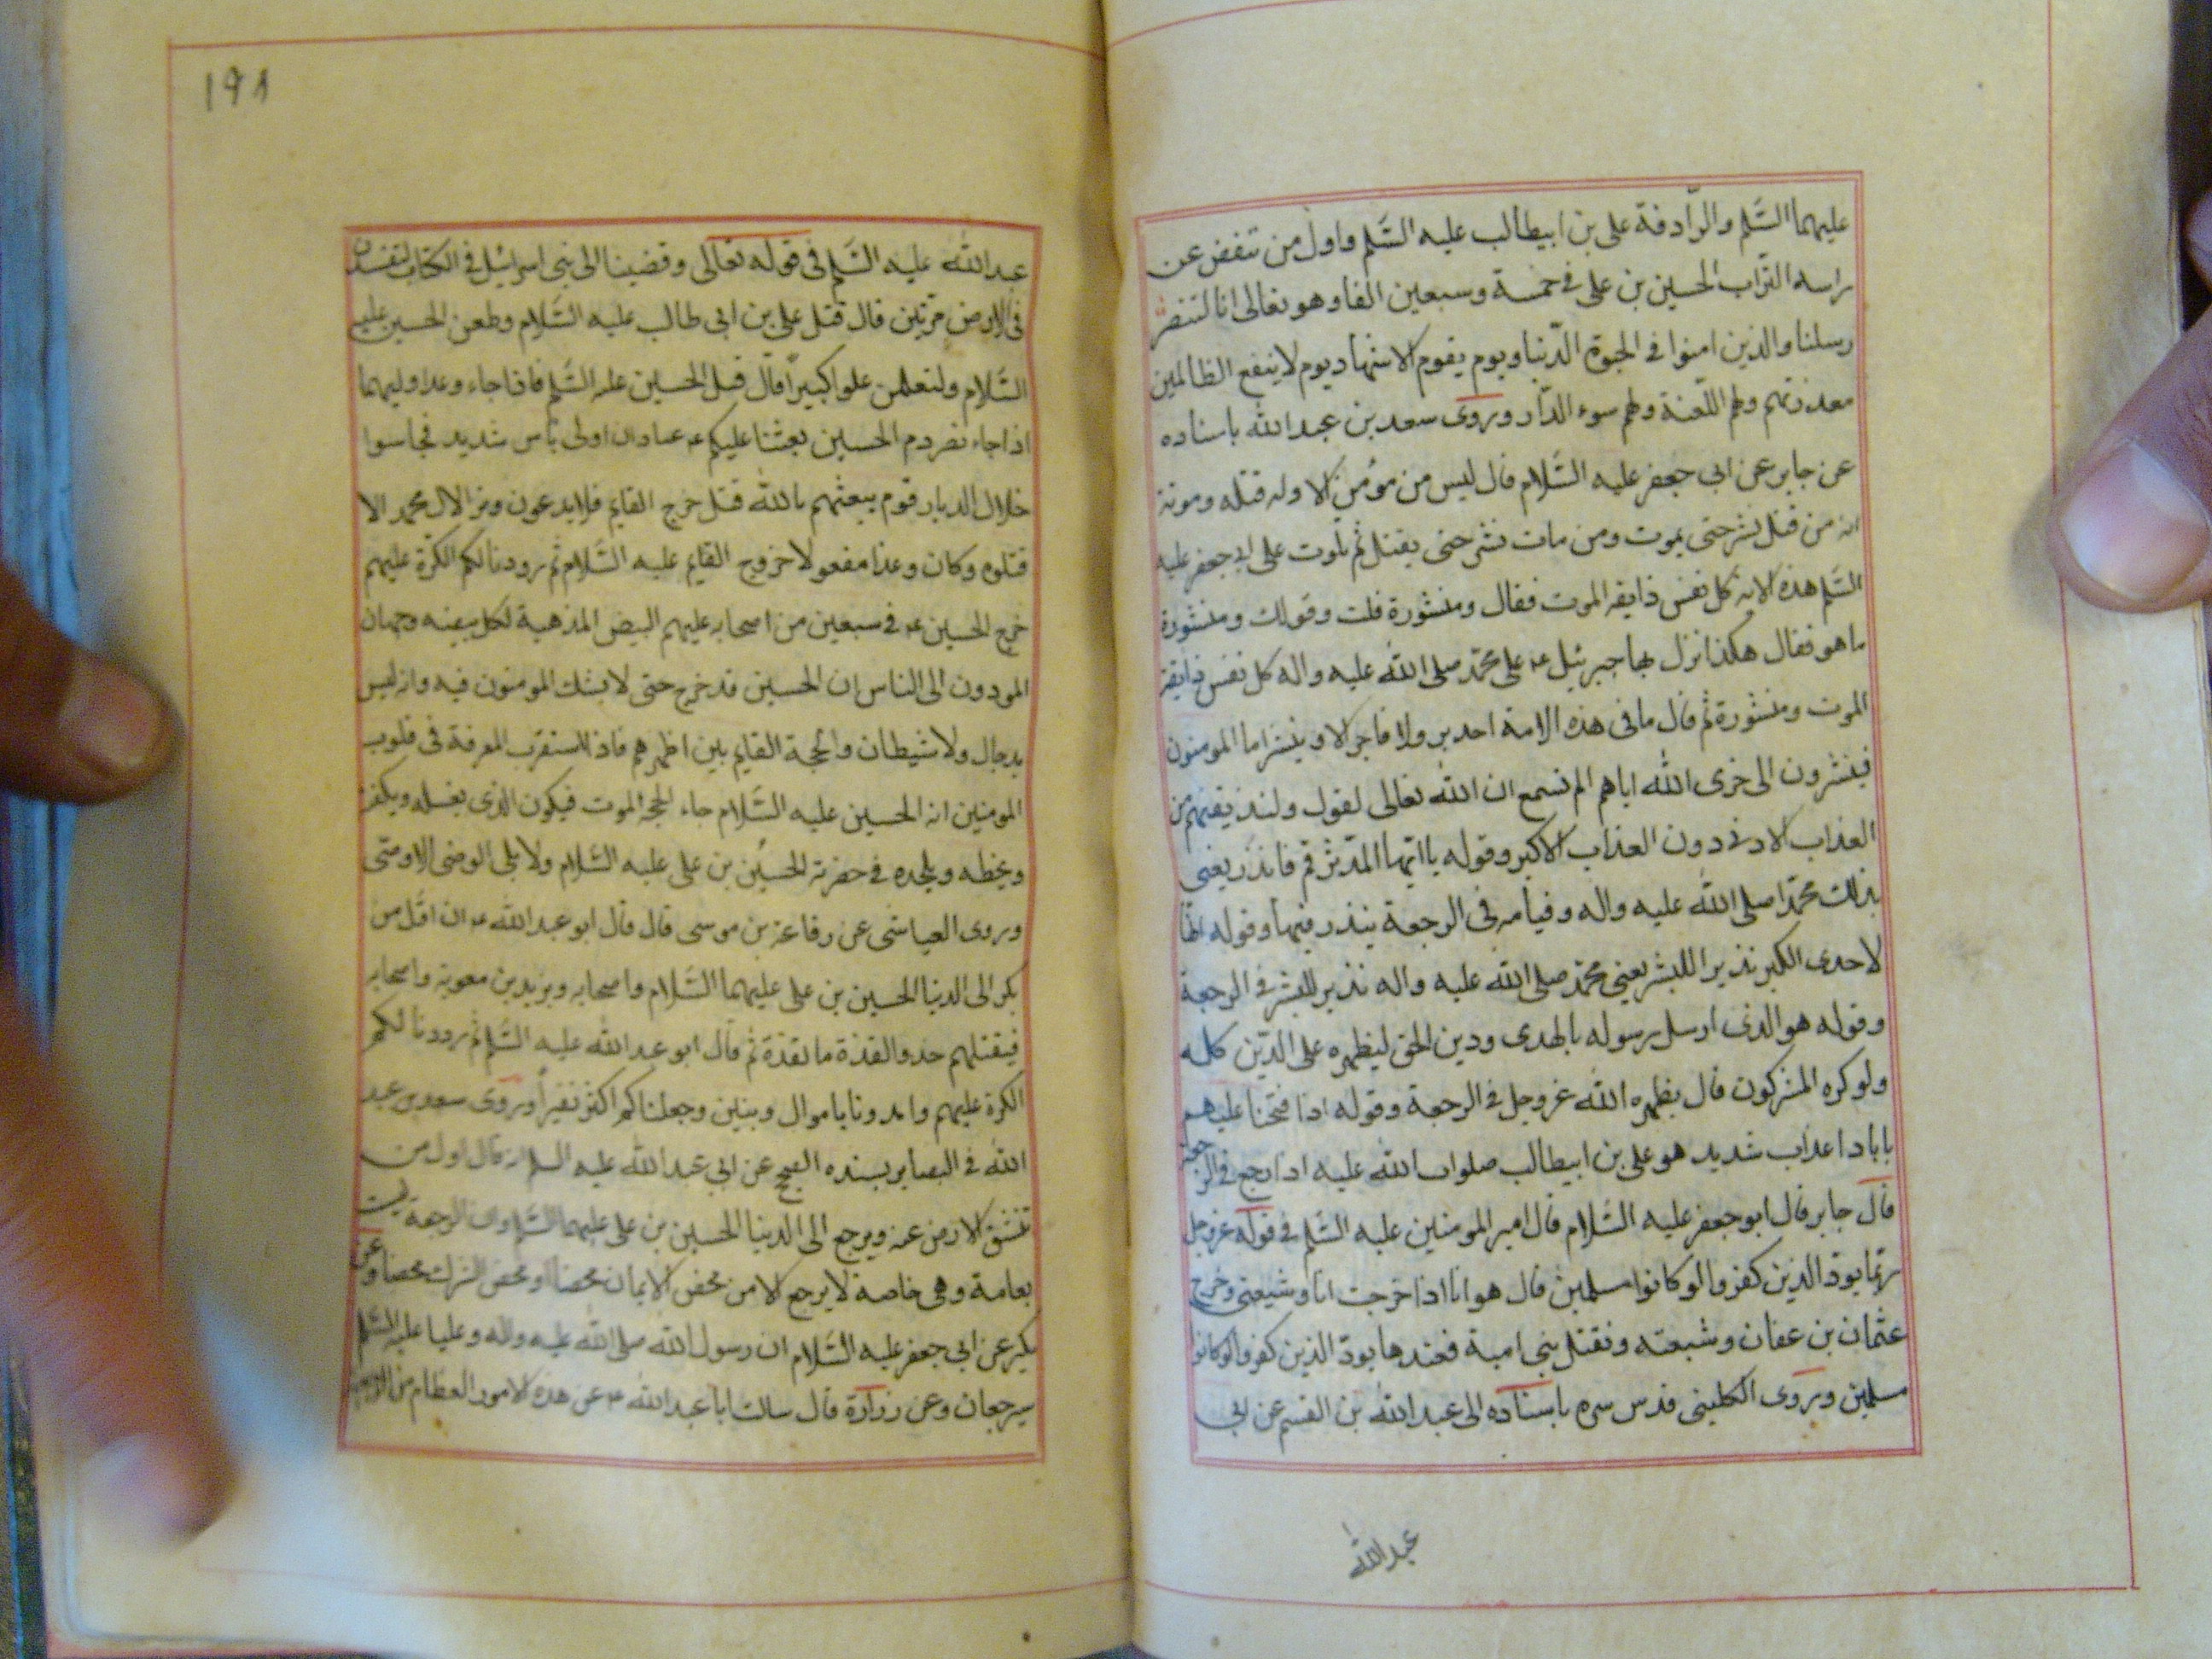 عليهما السَّلم والرّادفة على بن ابيطالب عليه السَّلم واول من تنفض عن
راسه التراب الحسين بن على فى خمسة وسبعين الفا وهو تعالى انا لننصر
رسلنا والذين امنوا فى الحيوة الدّنيا ويوم يقوم الاشهاد يوم لا ينفع الظالمين
معذرتهم ولهم اللّعنة ولهم سوء الدّار وروى سعد بن عبد الله باسناده
عن جابر عن ابى جعفر عليه السَّلام قال ليس من مؤمن الا وله قتله وموتة
انه من قتل نشر حتى يموت ومن مات نشر حتى يقتل ثم تلوت على ابى جعفر عليه
السَّلم هذه الايه كل نفس ذايقه الموت فقال ومنشورة قلت وقولك ومنشورة
ما هو فقال هكذا نزل بها جبرئيل ء على محمّد صلى الله عليه واله كل نفس ذايقة
الموت ومنشورة ثم قال ما فى هذه الامة احد بر ولا فاجر الا وينشر اما المومنون
فينشرون الى خزى الله اياهم الم تسمع ان الله تعالى لقول ولنذيقنهم من
العذاب الادنى دون العذاب الاكبر وقوله يا ايّها المدّثر قم فانذر يعنى
بذلك محمّدا صلى الله عليه واله وقيامه فى الرجعة ينذر فيها وقوله انّها
لاحدى الكبر نذيرا للبشر يعنى محمّد صلى الله عليه واله نذير للبشر فى الرجعة
وقوله هو الذى ارسل رسوله بالهدى ودين الحق ليظهره على الدّين كله
ولو كره المشركون قال يظهره الله عز وجل فى الرجعة وقوله اذا فتحنا عليهم
بابا ذا عذاب شديد هو على بن ابيطالب صلوات الله عليه اذا رجع فى الرجعة
قال جابر قال ابو جعفر عليه السَّلام قال امير المومنين عليه السَّلم فى قوله عز وجل
ربّما يودّ الذين كفروا لو كانوا مسلمين قال هو انا اذا خرجت انا وشيعتى وخرج
عثمان بن عفان وشيعته ونقتل بنى امية فعندها يودّ الذين كفروا لو كانوا
مسلمين وروى الكلينى قدس سره باسناده الى عبد الله بن القسم عن ابى
عبد الله
١٩٨
عبد الله عليه السَّلم فى قوله تعالى وقضينا الى بنى اسرائيل فى الكتاب لتفسدن
فى الارض مرّتين قال قتل على بن ابى طالب عليه السَّلام وطعن الحسين عليه
السَّلام ولتعلمن علوا كبيراً قال قتل الحسين عليه السَّلم فاذا جاء وعد اوليهما
اذا جاء نصر دم الحسين بعثنا عليكم ء عبادا اولى باس شديد فجاسوا
خلال الديار قوم يبعثهم بالله قتل خرج القايم فلا يدعون وترا لال محمد الا
قتلوه وكان وعدا مفعولا خروج القايم عليه السَّلام ثم رددنا لكم الكرّة عليهم
خرج الحسين ء فى سبعين من اصحابه عليهم البيض المذهبة لكل بيضه وجهان
المودون الى الناس ان الحسين قد خرج حتى لا يشك المومنون فيه وانه ليس
بدجال ولا شيطان والحجة القايم بين اظهرهم فاذا استقرب المعرفة فى قلوب
المومنين انه الحسين عليه السَّلام جاء للحجة الموت فيكون الذى يغسله ويكفن
ويحظه ويلحده فى حفرته الحسين بن على عليه السَّلام ولا يلى الوصى الا وصى
وروى العياشى عن رفاعة بن موسى قال قال ابو عبد الله ء ان اوّل من
يكر الى الدنيا الحسين بن على عليهما السَّلام واصحابه ويزيد بن معوية واصحابه
فيقتلهم حذو القذة بالقذة ثم قال ابو عبد الله عليه السَّلم ثم رددنا لكم
الكرة عليهم وامددنا باموال وبنين وجعلناكم اكثر نفيراً وروى سعد بن عبد
الله فى البصاير بسنده الصحيح عن ابى عبد الله عليه السلام قال اول من
تنشق الارض عنه ويرجع الى الدنيا الحسين بن على عليهما السَّلم وان الرجعة ليست
بعامة وهى خاصة لا يرجع الا من محض الايمان محضا او محض الشرك محضا وعن
بكير عن ابى جعفر عليه السَّلام ان رسول الله صلى الله عليه واله وعليا عليه السَّلم
سيرجعان وعن زرارة قال سالت ابا عبد الله ء عن هذه الامور العظام من الرجعة